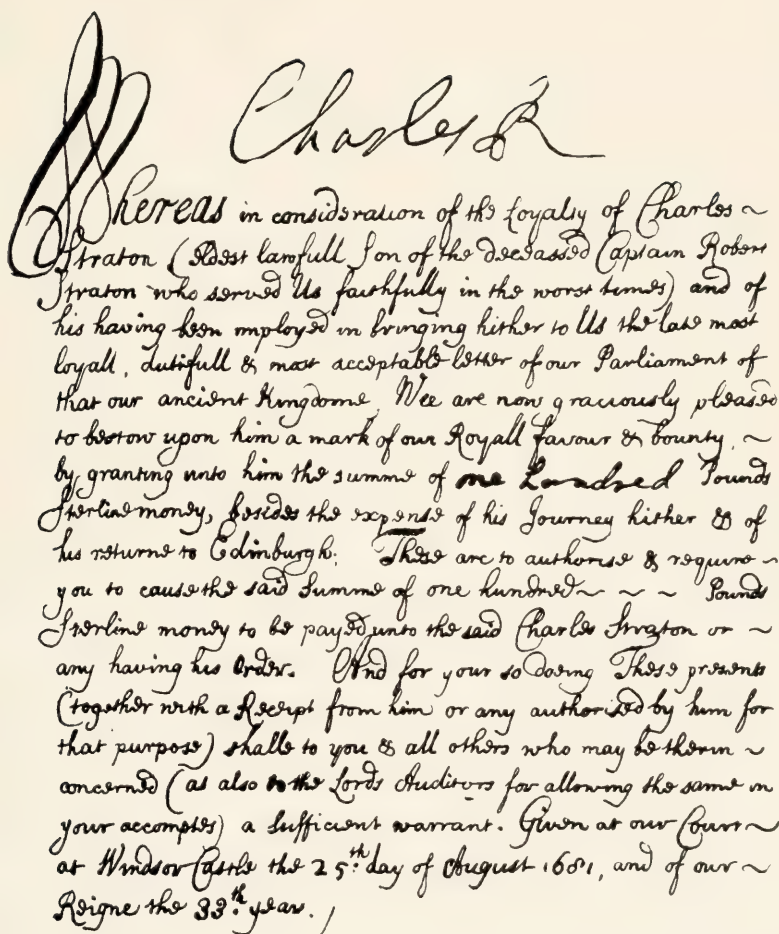 Charles R
Whereas in consideration of the Loyalty of Charles ~
Straton (eldest lawfull Son of the deceassed Captain Robert
Straton who served Us faithfully in the worst times) and of
his having been imployed in bringing hither to Us the late most
loyall, dutifull & most acceptable letter of our Parliament of
that our ancient Kingdome, Wee are now graciously pleased
to bestow upon him a mark of our Royall favour & bounty, ~
by granting unto him the summe of one hundred Pounds
Sterline money, besides the expense of his Journey hither & of
his returne to Edinburgh: These are to authorise & require ~
you to cause the said Summe of one hundred ~ ~ ~ Pounds
Sterline money to be payed unto the said Charles Straton or ~
any having his Order. And for your so doeing These presents
(together with a Receipt from him or any authorised by him for
that purpose) shalle to you & all others who may be therin ~
concerned (as also to the Lords Auditors for allowing the same in
your accomptes) a sufficient warrant. Given at our Court ~
at Windsor Castle the 25th day of August 1681, and of our ~
Reigne the 33th year.